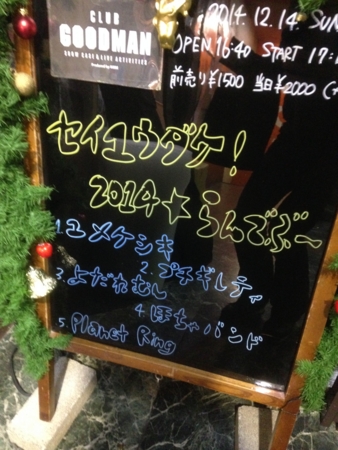 CLUB
GOODMAN
2014.12.14. SUN
OPEN 16:40 START 17:
前売り¥1500 当日¥2000 (+
セイユウダケ!
2014☆らんでぶー
1.ユメケシキ
2.プチギレティ
3.よだれむし
4.ぽちゃバンド
5.Planet Ring